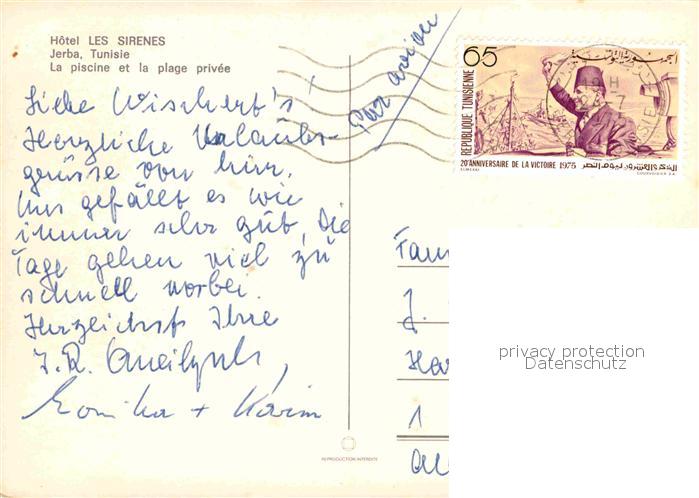 Hôtel LES SIRENES
Jerba, Tunisie
La piscine et la plage privée
Par avion
Liebe Wischert's!
Herzliche Urlaubs-
grüsse von hier.
Uns gefällt es wie
immer sehr gut, Die
Tage gehen viel zu
schnell vorbei.
Herzlichst Ihre
J. R.
Monika + Karim
65
REPUBLIQUE TUNISIENNE
الجمهورية التونسية
20e ANNIVERSAIRE DE LA VICTOIRE 1975
الذكرى العشرون ليوم النصر
COURVOISIER S.A.
Fam
J.
1
REPRODUCTION INTERDITE
privacy protection
Datenschutz